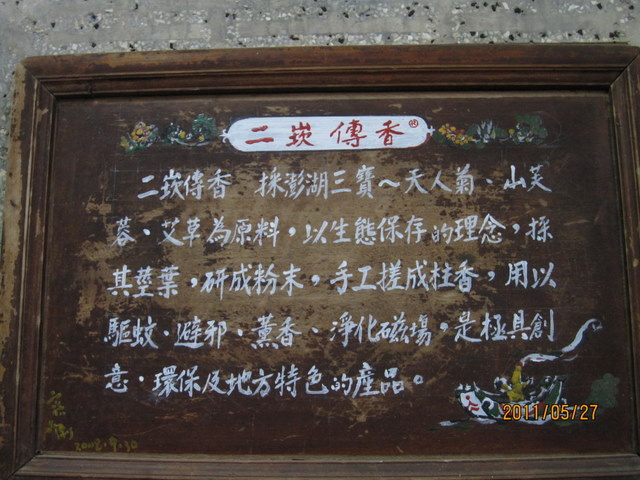 二崁傳香
二崁傳香 採澎湖三寶~天人菊、山芙
蓉、艾草為原料，以生態保存的理念，採
其莖葉，研成粉末，手工搓成柱香，用以
驅蚊、避邪、薰香、淨化磁場，是極具創
意、環保及地方特色的產品。
2002.9.30
2011/05/27